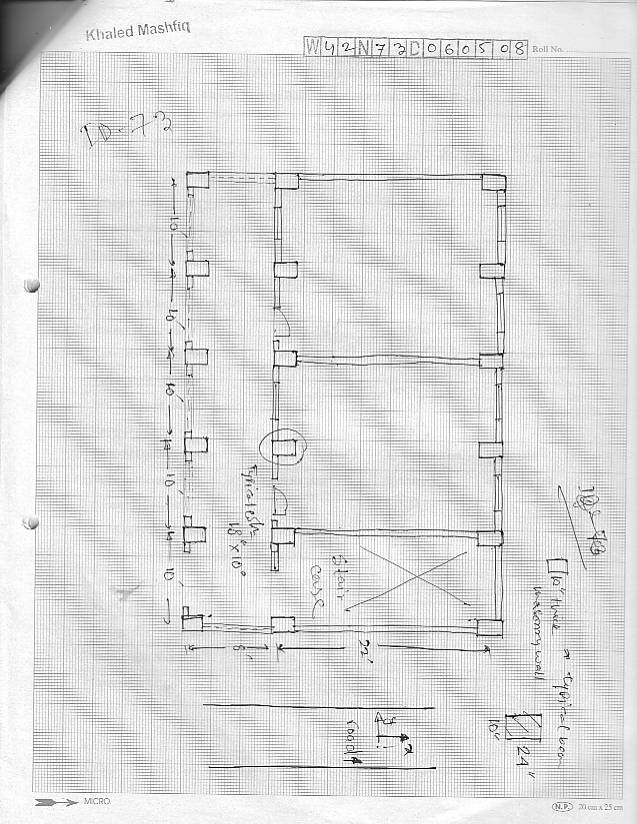 Khaled Mashfiq
W42N73C060508 Roll No.
ID-73
10'
10'
10'
10'
10'
Typical
18" x 10"
Stair
case
8'
22'
10" thick
masonry wall
typical
10"
24"
road
y
x
MICRO
N.P. 20 cm x 25 cm